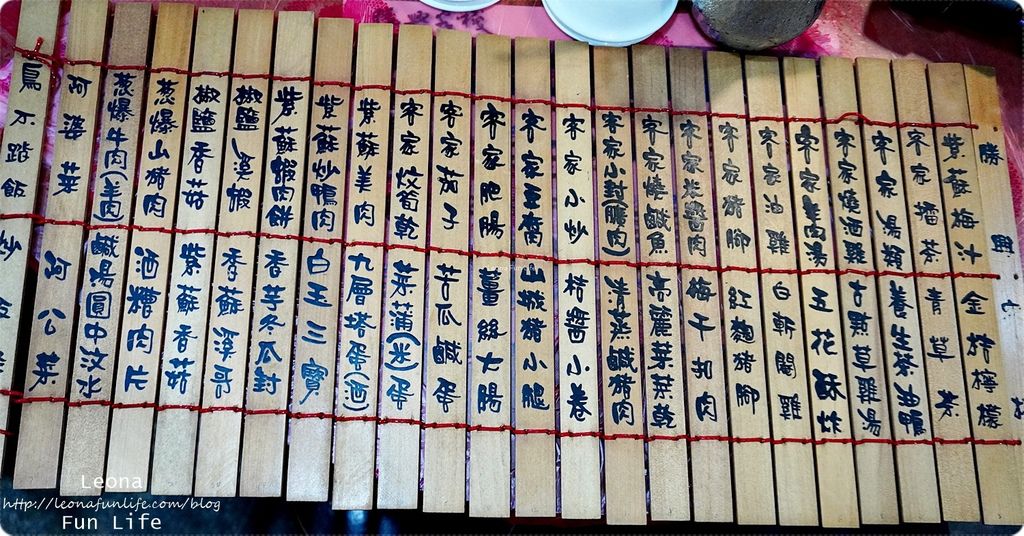 勝興六
紫蘇梅汁 金桔檸檬
客家擂茶 青草茶
客家湯類 養生茶油鴨
客家燒酒雞 古點草雞湯
客家羊肉湯 五花酥炸
客家油雞 白斬閹雞
客家豬腳 紅麴豬腳
客家炸醬肉 梅干扣肉
客家燒鹹魚 高麗菜菜乾
客家小封(腰肉) 清蒸鹹豬肉
客家小炒 桔醬小卷
客家豆腐 山豬小腿
客家肥腸 薑絲大腸
客家茄子 苦瓜鹹蛋
客家炆筍乾 菜蒲(米)蛋
紫蘇羊肉 九層塔蛋(酒)
紫蘇炒鴨肉 白玉三寶
紫蘇蝦肉餅 香芋冬瓜封
椒鹽溪蝦 香蘇溪哥
椒鹽香菇 紫蘇香菇
蔥爆山豬肉 酒糟肉片
蔥爆牛肉(羊肉) 鹹湯圓中汶水
阿婆菜 阿公菜
鳥不踏飯 炒
Leona
http://leonafunlife.com/blog
Fun Life